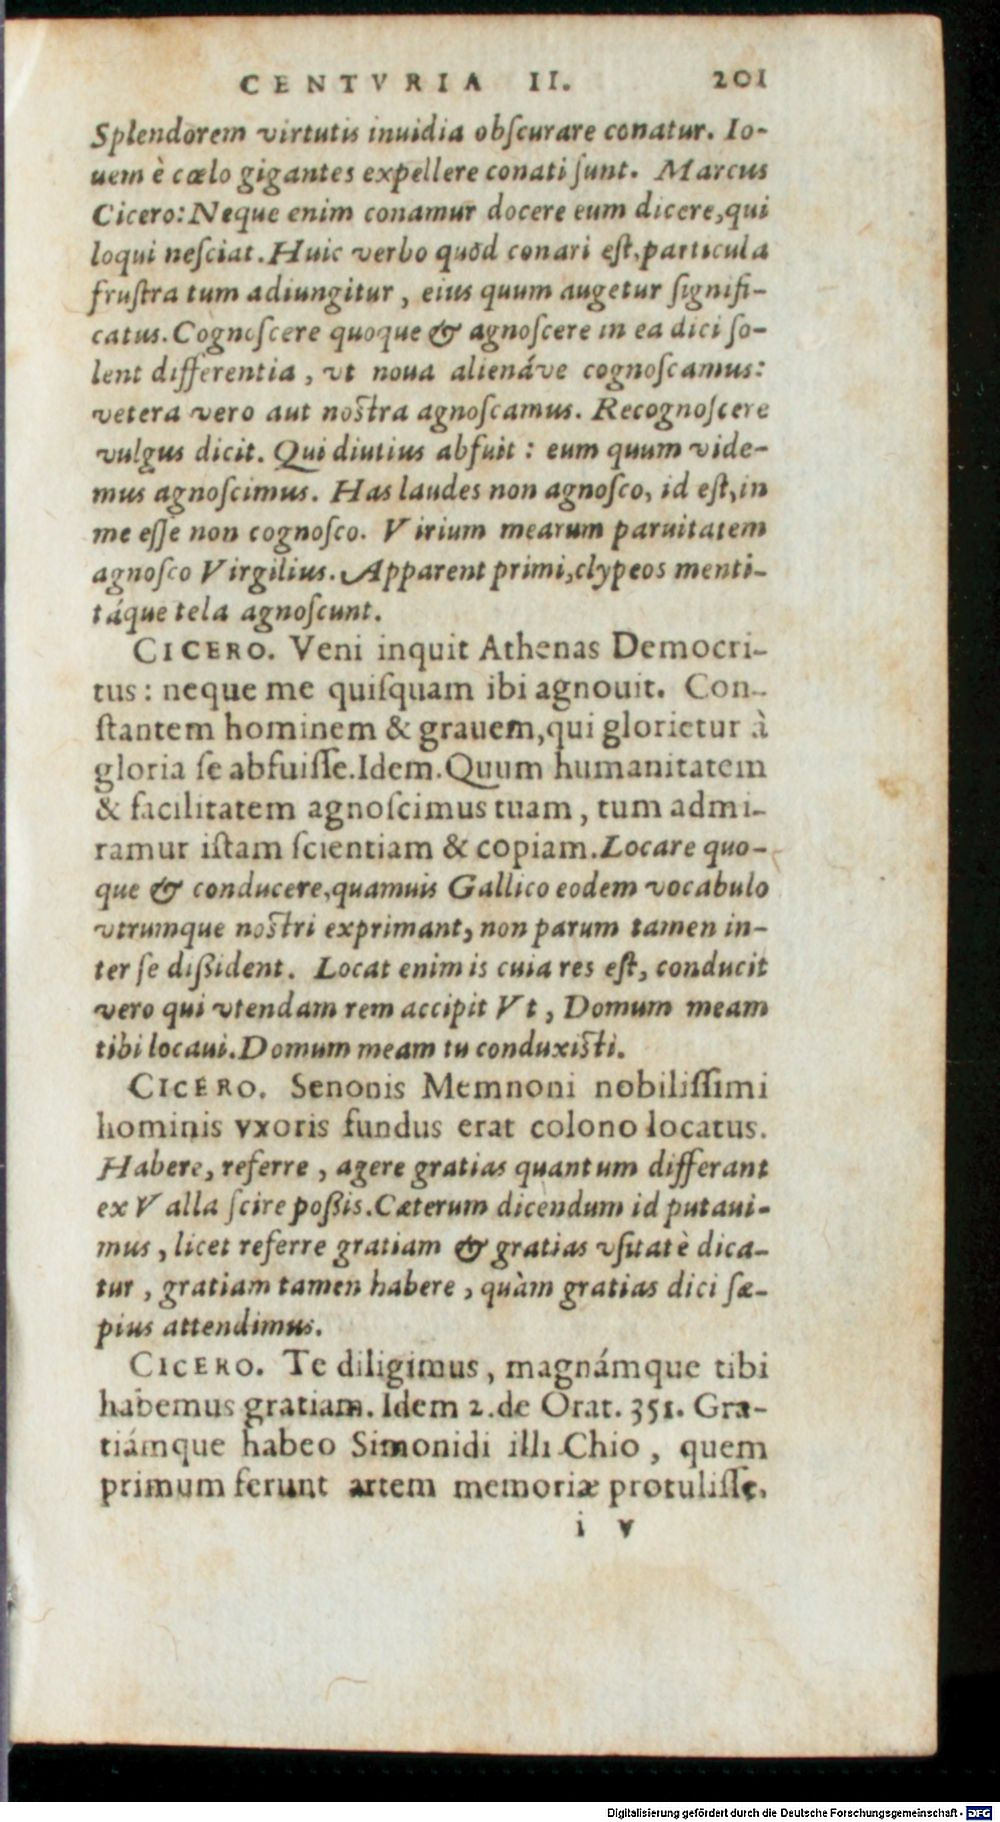 CENTVRIA II. 201
Splendorem virtutis inuidia obſcurare conatur. Io-
uem è cœlo gigantes expellere conati ſunt. Marcus
Cicero: Neque enim conamur docere eum dicere, qui
loqui neſciat. Huic verbo quòd conari eſt, particula
fruſtra tum adiungitur, eius quum augetur ſignifi-
catus. Cognoſcere quoque & agnoſcere in ea dici ſo-
lent differentia, vt noua alienáve cognoſcamus:
vetera vero aut noſtra agnoſcamus. Recognoſcere
vulgus dicit. Qui diutius abfuit: eum quum vide-
mus agnoſcimus. Has laudes non agnoſco, id eſt, in
me eſſe non cognoſco. Virium mearum paruitatem
agnoſco Virgilius. Apparent primi, clypeos menti-
táque tela agnoſcunt.
CICERO. Veni inquit Athenas Democri-
tus: neque me quiſquam ibi agnouit. Con-
ſtantem hominem & grauem, qui glorietur à
gloria ſe abfuiſſe. Idem. Quum humanitatem
& facilitatem agnoſcimus tuam, tum admi-
ramur iſtam ſcientiam & copiam. Locare quo-
que & conducere, quamuis Gallico eodem vocabulo
vtrumque noſtri exprimant, non parum tamen in-
ter ſe dißident. Locat enim is cuia res eſt, conducit
vero qui vtendam rem accipit Vt, Domum meam
tibi locaui. Domum meam tu conduxiſti.
CICERO. Senonis Memnoni nobiliſſimi
hominis vxoris fundus erat colono locatus.
Habere, referre, agere gratias quantum differant
ex Valla ſcire poßis. Cæterum dicendum id putaui-
mus, licet referre gratiam & gratias vſitatè dica-
tur, gratiam tamen habere, quàm gratias dici ſæ-
pius attendimus.
CICERO. Te diligimus, magnámque tibi
habemus gratiam. Idem 2. de Orat. 351. Gra-
tiámque habeo Simonidi illi Chio, quem
primum ferunt artem memoriæ protuliſſe.
i v
Digitalisierung gefördert durch die Deutsche Forschungsgemeinschaft - DFG